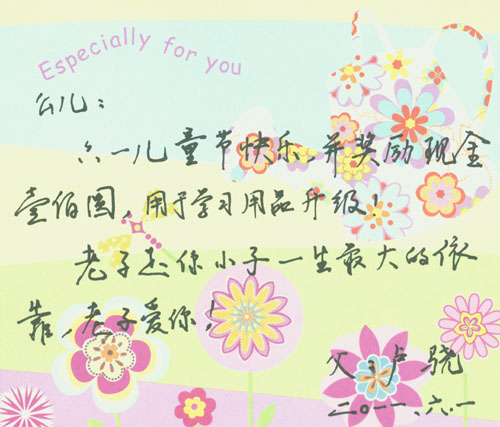 Especially for you
公儿：
六一儿童节快乐，并奖励现金
壹佰圆，用于学习用品升级！
老子是你小子一生最大的依
靠，老子爱你！
父：卢骁
二〇一一.六.一